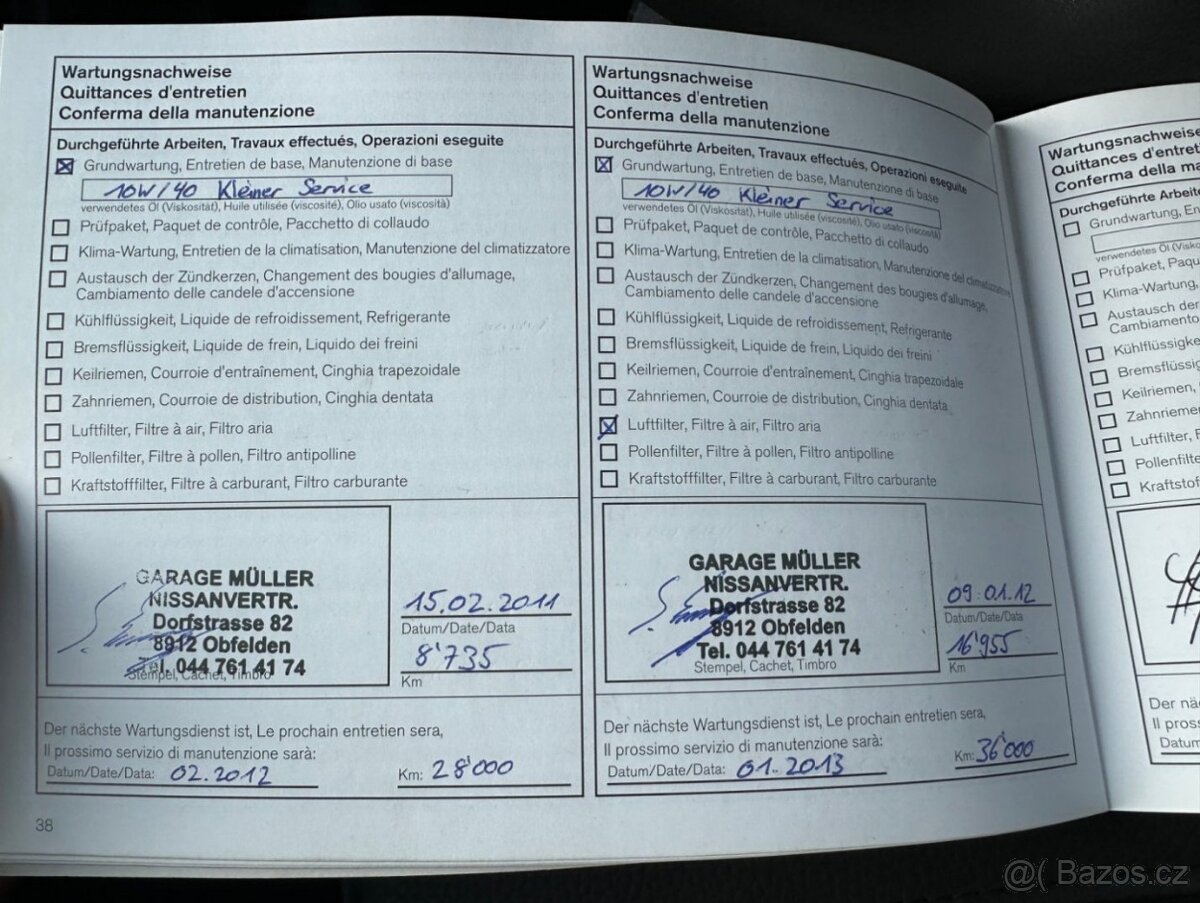 Wartungsnachweise
Quittances d'entretien
Conferma della manutenzione
Durchgeführte Arbeiten, Travaux effectués, Operazioni eseguite
Grundwartung, Entretien de base, Manutenzione di base
10W/40 Kleiner Service
verwendetes Öl (Viskosität), Huile utilisée (viscosité), Olio usato (viscosità)
Prüfpaket, Paquet de contrôle, Pacchetto di collaudo
Klima-Wartung, Entretien de la climatisation, Manutenzione del climatizzatore
Austausch der Zündkerzen, Changement des bougies d'allumage,
Cambiamento delle candele d'accensione
Kühlflüssigkeit, Liquide de refroidissement, Refrigerante
Bremsflüssigkeit, Liquide de frein, Liquido dei freini
Keilriemen, Courroie d'entraînement, Cinghia trapezoidale
Zahnriemen, Courroie de distribution, Cinghia dentata
Luftfilter, Filtre à air, Filtro aria
Pollenfilter, Filtre à pollen, Filtro antipolline
Kraftstofffilter, Filtre à carburant, Filtro carburante
GARAGE MÜLLER
NISSANVERTR.
Dorfstrasse 82
8912 Obfelden
Tel. 044 761 41 74
Stempel, Cachet, Timbro
15.02.2011
Datum/Date/Data
8'735
Km
Der nächste Wartungsdienst ist, Le prochain entretien sera,
Il prossimo servizio di manutenzione sarà:
Datum/Date/Data: 02.2012 Km: 28'000
38
Wartungsnachweise
Quittances d'entretien
Conferma della manutenzione
Durchgeführte Arbeiten, Travaux effectués, Operazioni eseguite
Grundwartung, Entretien de base, Manutenzione di base
10W/40 Kleiner Service
verwendetes Öl (Viskosität), Huile utilisée (viscosité), Olio usato (viscosità)
Prüfpaket, Paquet de contrôle, Pacchetto di collaudo
Klima-Wartung, Entretien de la climatisation, Manutenzione del climatizzatore
Austausch der Zündkerzen, Changement des bougies d'allumage,
Cambiamento delle candele d'accensione
Kühlflüssigkeit, Liquide de refroidissement, Refrigerante
Bremsflüssigkeit, Liquide de frein, Liquido dei freini
Keilriemen, Courroie d'entraînement, Cinghia trapezoidale
Zahnriemen, Courroie de distribution, Cinghia dentata
Luftfilter, Filtre à air, Filtro aria
Pollenfilter, Filtre à pollen, Filtro antipolline
Kraftstofffilter, Filtre à carburant, Filtro carburante
GARAGE MÜLLER
NISSANVERTR.
Dorfstrasse 82
8912 Obfelden
Tel. 044 761 41 74
Stempel, Cachet, Timbro
09.01.12
Datum/Date/Data
16'955
Km
Der nächste Wartungsdienst ist, Le prochain entretien sera,
Il prossimo servizio di manutenzione sarà:
Datum/Date/Data: 01.2013 Km: 36'000
Wartungsnachweise
Quittances d'entret
Conferma della ma
Durchgeführte Arbeite
Grundwartung, En
verwendetes Öl (Visko
Prüfpaket, Paqu
Klima-Wartung,
Austausch der
Cambiamento
Kühlflüssigke
Bremsflüssig
Keilriemen,
Zahnriemen
Luftfilter, F
Pollenfilte
Kraftstof
Der nä
Il pros
Datum
@( Bazos.cz